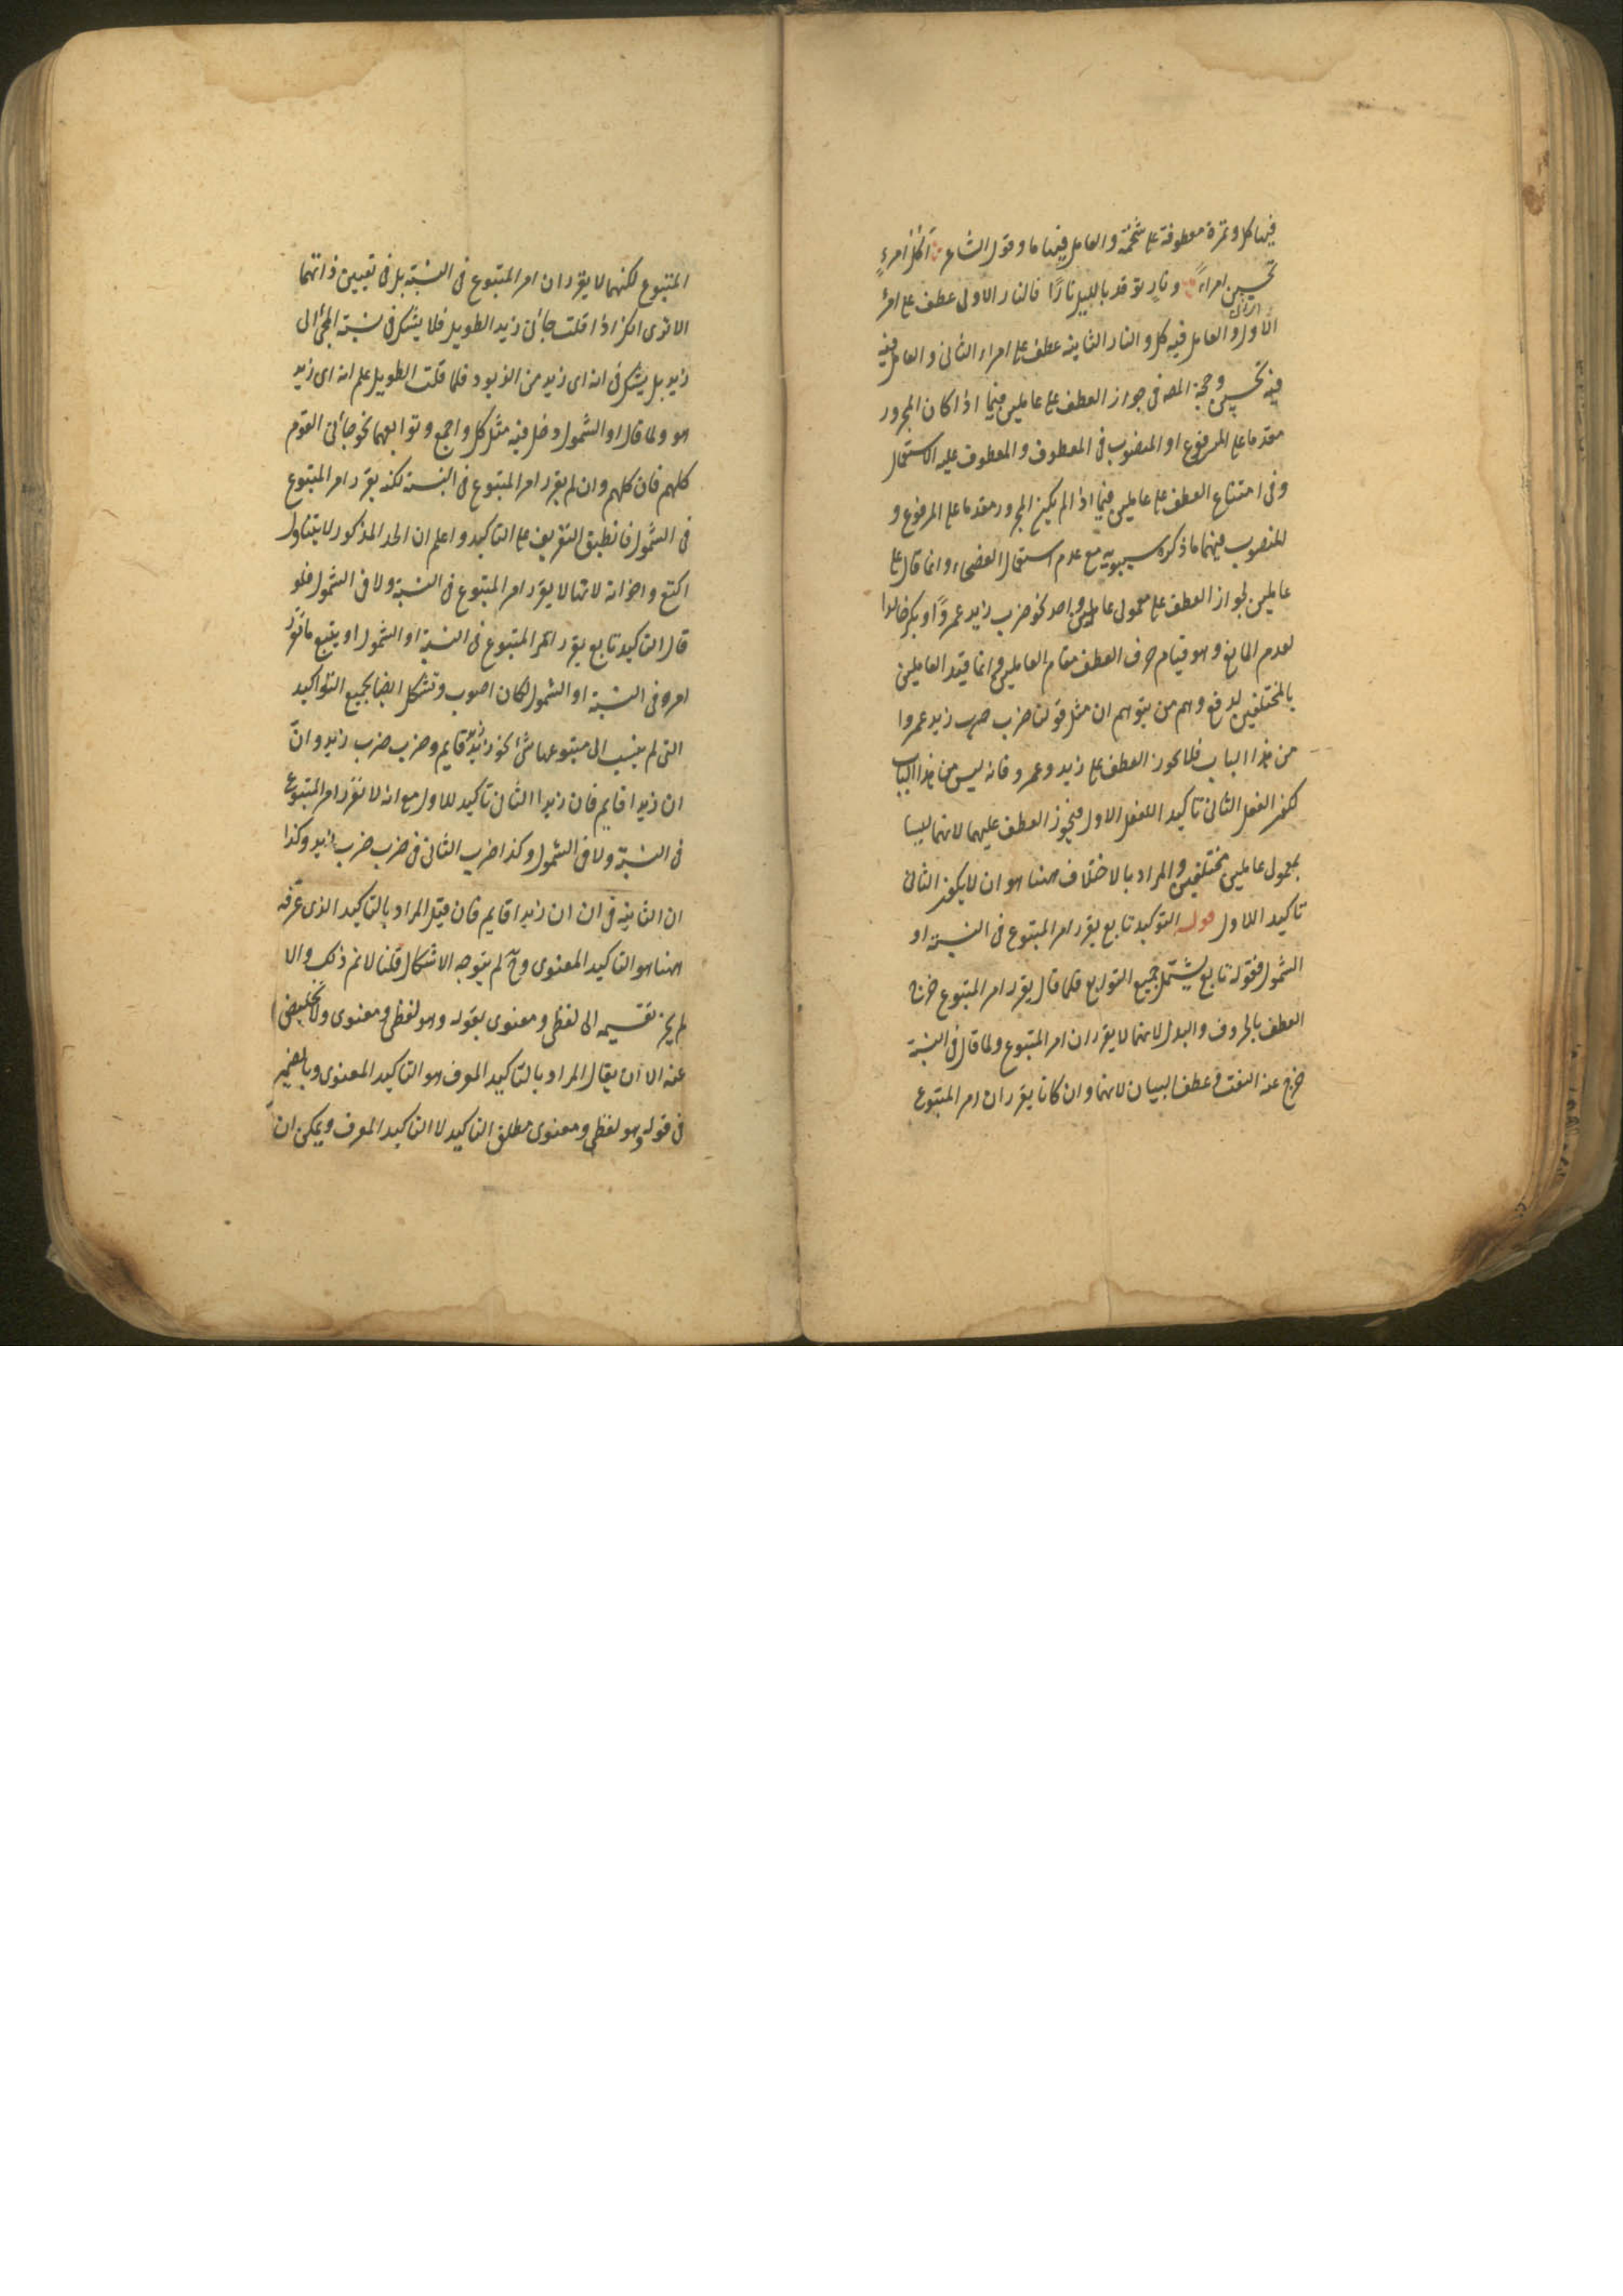 فيها كل وتمرة معطوفة على شحمة والعامل فيها ما وقول الشاعر أكل امرءٍ
تحسبين امراءً ونارٍ توقد بالليل نارًا فالنار الاولى عطف على امرء
الاول والعامل فيه كل والنار الثانية عطف على امراء الثانى والعامل فيه
فيه تحسبين وحجة المصـ فى جواز العطف على عاملين فيما اذا كان المجرور
مقدما على المرفوع او المنصوب فى المعطوف والمعطوف عليه الاستعمال
وفى امتناع العطف على عاملين فيما اذا لم يكن المجرور مقدما على المرفوع و
المنصوب فيهما ما ذكره سيبويه مع عدم استعمال الفصحاء وانما قال على
عاملين لجواز العطف على معمولى عامل واحد نحو ضرب زيد عمروًا وبكر خالدا
لعدم المانع وهو قيام حرف العطف مقام العاملين وانما قيد العاملين
بالمختلفين لدفع وهم من يتوهم ان مثل قولنا ضرب ضرب زيد عمروا
من هذا الباب فلا يجوز العطف على زيد وعمرو فانه ليس من هذا الباب
لكون الفعل الثانى تاكيد اللفعل الاول فيجوز العطف عليهما لانهما ليسا
بمعمولى عاملين مختلفين والمراد بالاختلاف ههنا هو ان لا يكون الثانى
تاكيد اللاول قوله التوكيد تابع يقرر امر المتبوع فى النسبة او
الشمول فقوله تابع يشتمل جميع التوابع فلما قال يقرر امر المتبوع خرج
العطف بالحروف والبدل لانهما لا يقرران امر المتبوع ولما قال فى النسبة
خرج عنه النعت وعطف البيان لانهما وان كانا يقرران امر المتبوع
المتبوع لكنهما لا يقرران امر المتبوع فى النسبة بل فى تعيين ذاتهما
الا ترى انك اذا قلت جائنى زيد الطويل فلا يشك فى نسبة المجئ الى
زيد بل يشك فى انه اى زيد من الزيود فلما قلت الطويل علم انه اى زيد
هو ولما قال او الشمول دخل فيه مثل كل واجمع وتوابعهما نحو جائنى القوم
كلهم فان كلهم وان لم يقرر امر المتبوع فى النسبة لكنه يقرر امر المتبوع
فى الشمول فانطبق التعريف على التاكيد واعلم ان الحد المذكور لا يتناول
اكتع واخواته لانها لا يقرر امر المتبوع فى النسبة ولا فى الشمول فلو
قال التاكيد تابع يقرر امر المتبوع فى النسبة او الشمول او يتبع ما تقرر
امره فى النسبة او الشمول لكان اصوب وتشكل ايضا بجميع التواكيد
التى لم ينسب الى متبوعها شئ نحو زيد زيد قايم وضرب ضرب زيد وانّ
ان زيدا قايم فان زيدا الثانى تاكيد للاول مع انه لا تقرر امر المتبوع
فى النسبة ولا فى الشمول وكذا ضرب الثانى فى ضرب ضرب زيد وكذا
ان الثانية فى ان ان زيدا قايم فان قيل المراد بالتاكيد الذى عرّفه
ههنا هو التاكيد المعنوى وحـ لم يتوجه الاشكال قلنا لا نم ذلك والا
لم يجز تقسيمه الى لفظى ومعنوى بقوله وهو لفظى ومعنوى ولا مخلص
عنه الا ان يقال المراد بالتاكيد المعرف هو التاكيد المعنوى وبالضمير
فى قوله وهو لفظى ومعنوى مطلق التاكيد لا التاكيد المعرف ويمكن ان